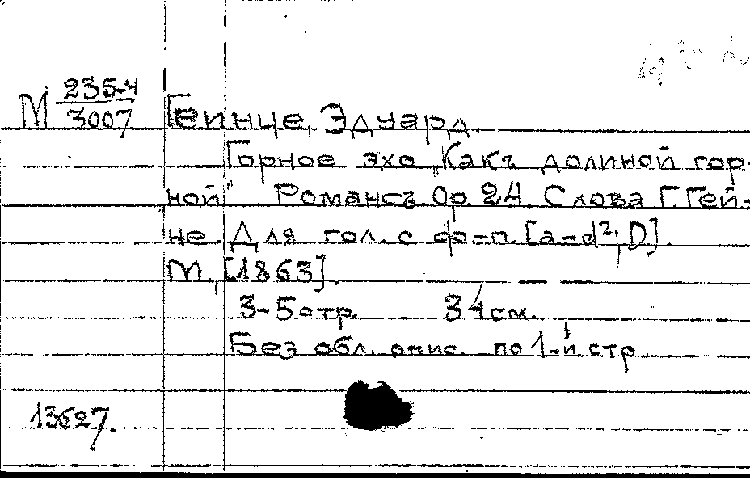 М 235-4/3007 Геинце, Эдуард.
Горное эхо „Какъ долиной гор-
ной" Романсъ Op. 24. Слова Г. Гей-
не. Для гол. с ф-п. [a-d², D].
М., [1863].
3-5 стр. 34 см.
Без обл. опис. по 1-й стр.
13627.